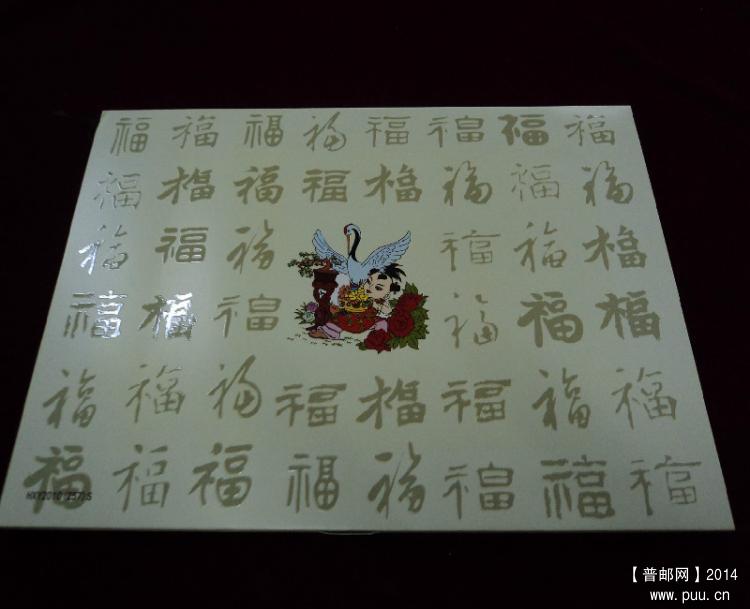 福 福 福 福 福 福 福 福
福 福 福 福 福 福 福 福
福 福 福 福 福 福
福 福 福 福 福 福
福 福 福 福 福 福 福 福
福 福 福 福 福 福 福 福
HXY2010
【普邮网】2014
www.puu.cn